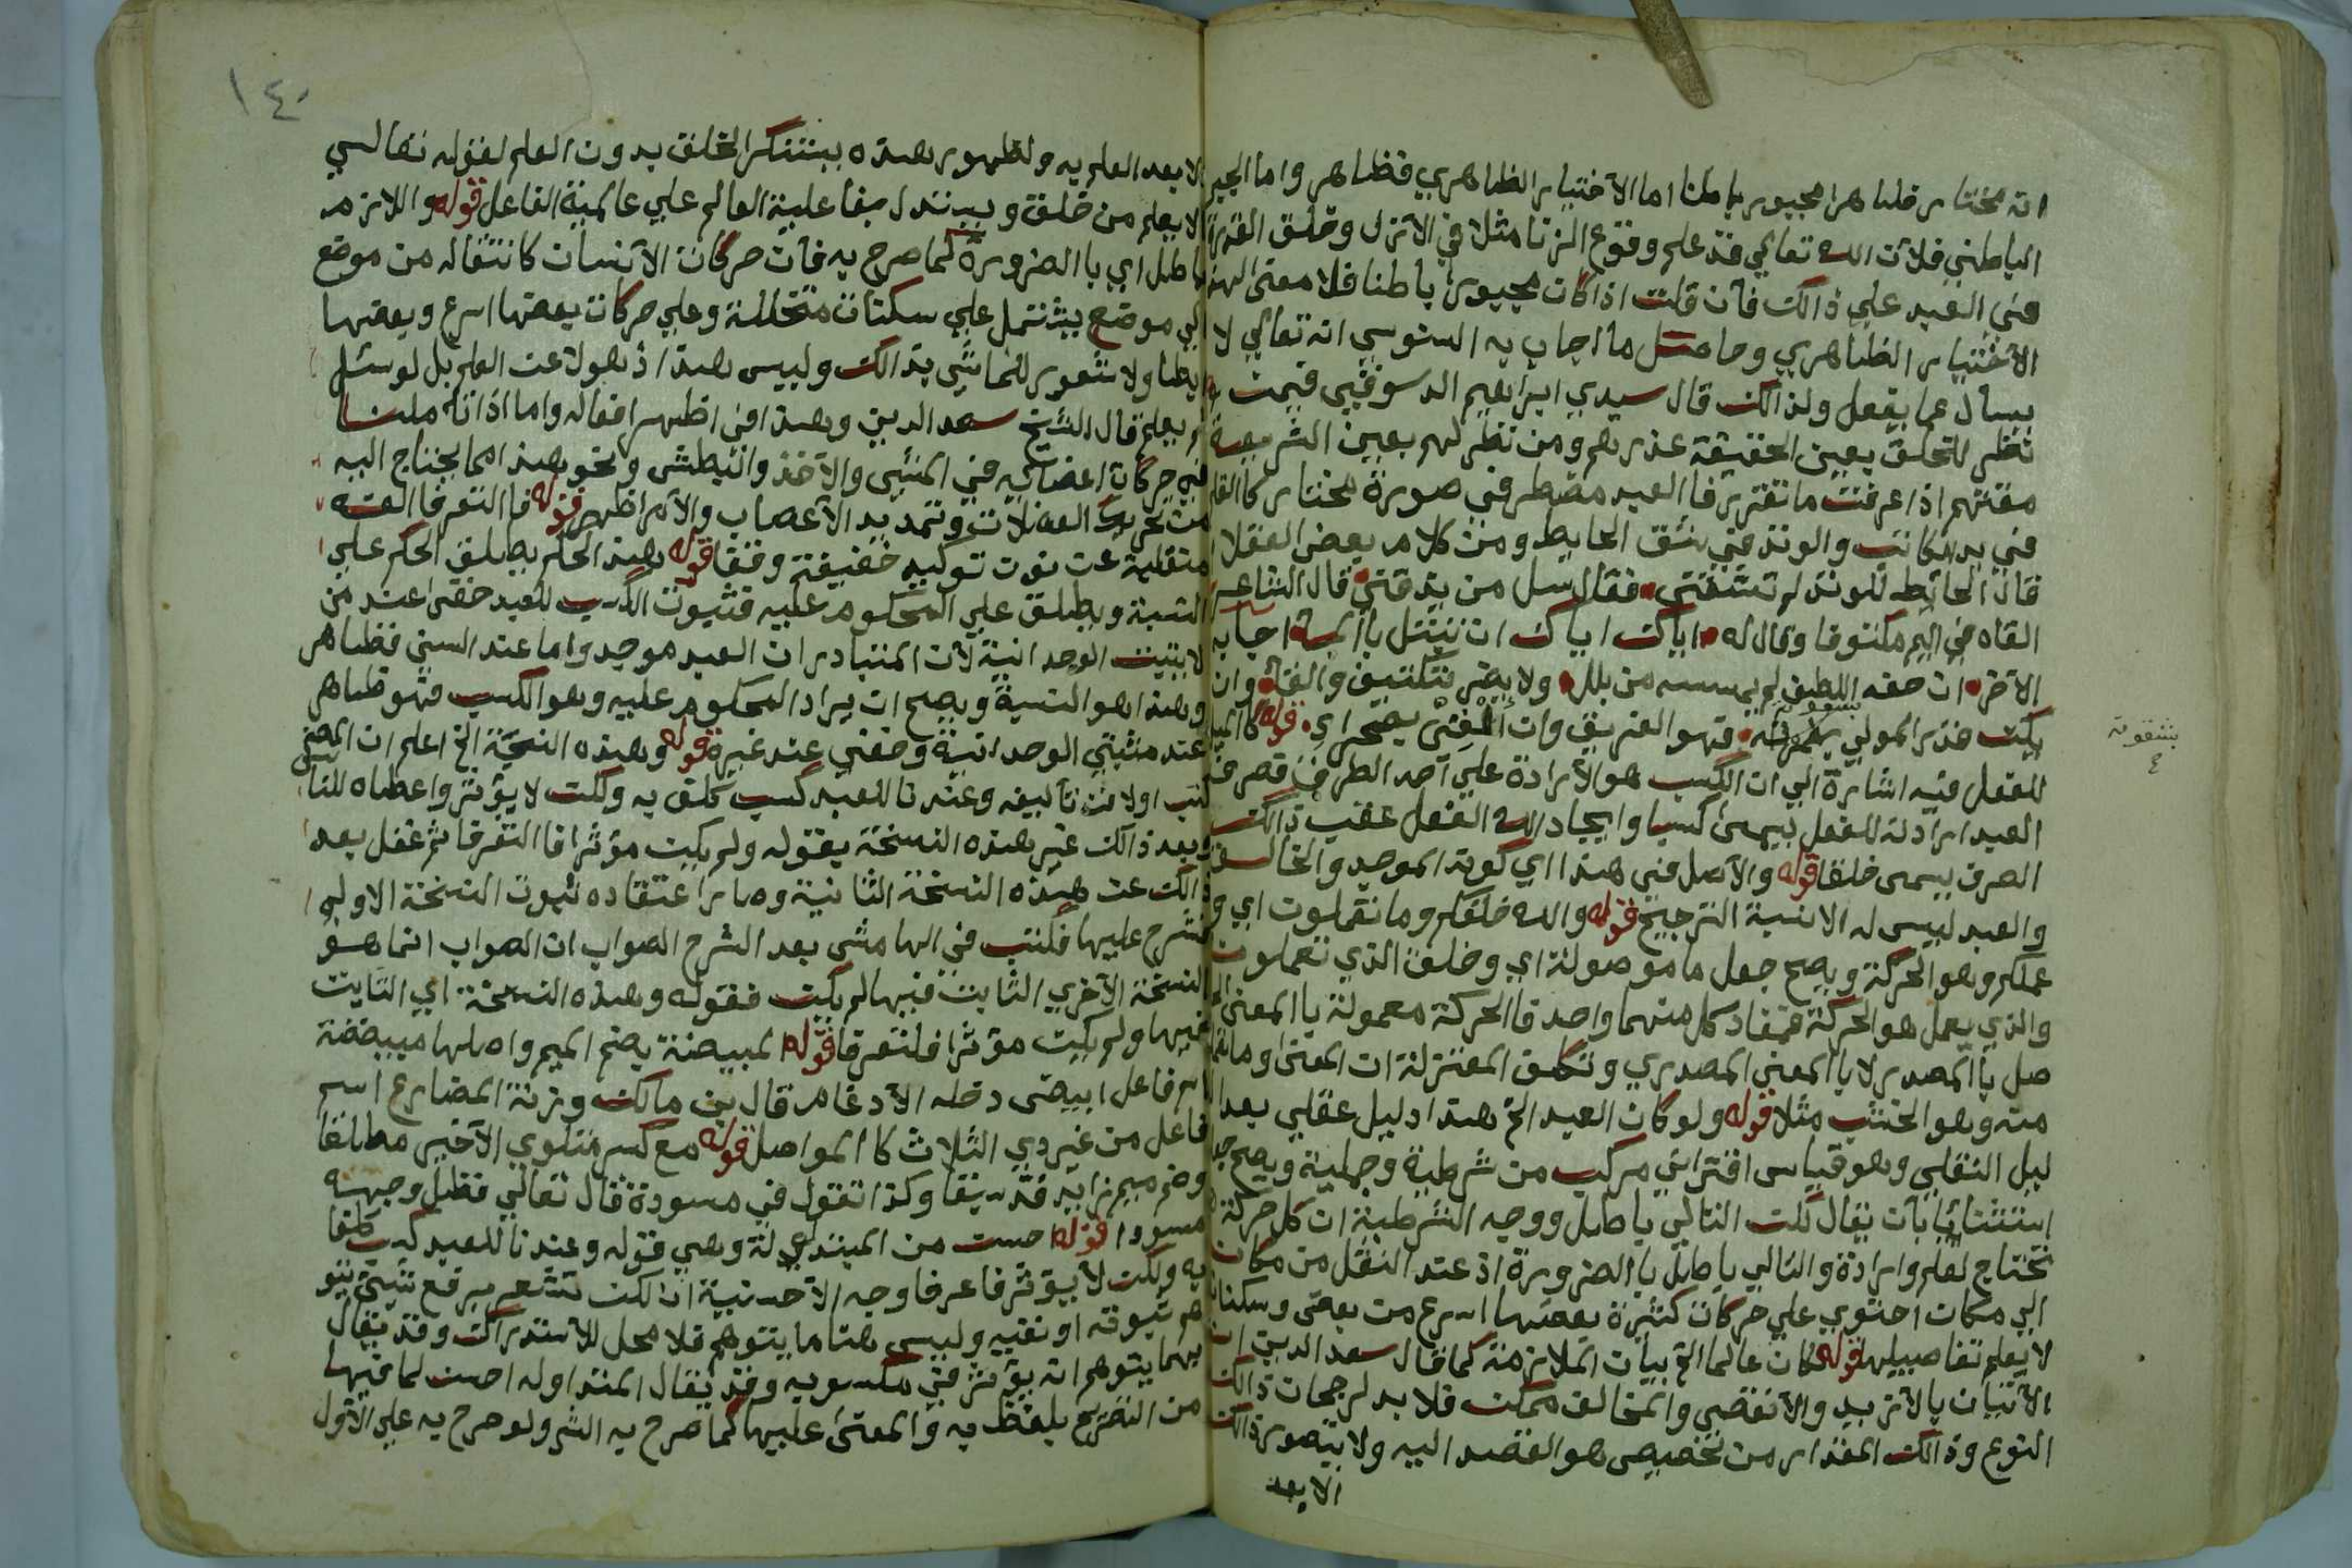 انه مختار ظاهرا مجبور باطنا اما الاختيار الظاهري فظاهر واما الجبر
الباطني فلان الله تعالي قد علم وقوع الزنا مثلا في الازل وخلق القدرة
في العبد علي ذالك فان قلت اذا كان مجبورا باطنا فلا معني لهذا
الاختيار الظاهري وحاصل ما اجاب به السنوسي انه تعالي لا
يسال عما يفعل ولذالك قال سيدي ابراهيم الدسوقي فمن
نظر للخلق بعين الحقيقة عذرهم ومن نظر لهم بعين الشريعة
مقتهم اذا عرفت ما تقرر فا العبد مضطر في صورة مختار كا القلم
في يد الكاتب والوتد في شق الحايط ومن كلام بعض العقلا
قال الحائط للوتد لم تشقني فقال سل من يدقني قال الشاعر
القاه في اليم مكتوفا وقال له اياك اياك ان تبتل با الما اجابه
الاخر ان حفه اللطف لم يمسسه من بلل ولا يضر بتكتيف والقا وان
يكن قدر المولي فهو الغريق وان القي بصحراي قوله كا الميل
بشقوته
للفعل فيه اشارة الي ان الكسب هو الارادة علي احد الطرفين فصرف
العبد ارادته للفعل يسمي كسبا وايجاد الله الفعل عقب ذالك
الصرف يسمي خلقا قوله والاصل في هذا اي كونه الموجد والخالق
والعبد ليس له الا نسبة الترجيح قوله والله خلقكم وما تعملون اي و
عملكم وهو الحركة ويصح جعل ما موصولة اي وخلق الذي تعملون
والذي يعمل هو الحركة فمفاد كل منهما واحد فا الحركة معمولة با المعني الحا
صل با المصدر لا با المعني المصدري وتكلف المعتزلة ان المعني وما تعملون
منه وهو الخشب مثلا قوله ولو كان العبد الخ هذا دليل عقلي بعد الد
ليل النقلي وهو قياس اقتراني مركب من شرطية وحملية ويصح جعله
استثنائيا بان يقال لكن التالي باطل ووجه الشرطية ان كل حركة
تحتاج لعلم وارادة والتالي باطل با الضرورة اذ عند النقل من مكان
الي مكان احتوي علي حركات كثيرة بعضها اسرع من بعض وسكنات
لا يعلم تفاصيلها قوله لكان عالما الخ بيان الملازمة كما قال سعد الدين ان
الاتيان بالازيد والانقص والمخالف ممكن فلا بد لرجحان ذالك
النوع وذالك المقدار من تخصيص هو القصد اليه ولا يتصور ذالك
الا بعد
١٤٠
الا بعد العلم به ولظهور هذه يستنكر الخلق بدون العلم لقوله تعالي
الا يعلم من خلق ويستدل بفاعلية العالم علي عالمية الفاعل قوله واللازم
باطل اي با الضرورة كما صرح به فان حركات الانسان كانتقاله من موضع
الي موضع يشتمل علي سكنات متخللة وعلي حركات بعضها اسرع وبعضها
ابطا ولا شعور للماشي بذالك وليس هذا ذهولا عن العلم بل لو سئل
لم يعلم قال الشيخ سعد الدين وهذا في اظهر افعاله واما اذا تاملنا
في حركات اعضائه في المشي والاخذ والبطش ونحو هذا مما يحتاج اليه
من تحريك العضلات وتمديد الاعصاب والامر اظهر قوله فا التعرفا الفه
منقلبة عن نون توكيد خفيفة وقفا قوله هذا الحكم يطلق الحكم علي
النسبة ويطلق علي المحكوم عليه فثبوت الكسب للعبد خفي عند من
لا يثبت الوحدانية لان المتبادر ان العبد موجد واما عند السني فظاهر
وهذا هو النسبة ويصح ان يراد المحكوم عليه وهو الكسب فهو ظاهر
عند مثبتي الوحدانية وخفي عند غيره قوله وهذه النسخة الخ اعلم ان المصنف
كتب اولا من تاليفه وعندنا للعبد كسب كلف به ولكن لا يؤثر واعطاه للناس
وبعد ذالك غير هذه النسخة بقوله ولم يكن مؤثرا فا التعرفا ثم غفل بعد
ذالك عن هذه النسخة الثانية وصار اعتقاده ثبوت النسخة الاولي
فشرح عليها فكتب في الهامش بعد الشرح الصواب ان الصواب انما هو
النسخة الاخري الثابت فيها لم يكن فقوله وهذه النسخة اي الثابت
فيها ولم يكن مؤثرا فلتعرفا قوله المبيضة بضم الميم واصلها مبيضضة
اسم فاعل ابيض دخله الادغام قال بن مالك وزنة المضارع اسم
فاعل من غير ذي الثلاث كا المواصل قوله مع كسر متلوي الاخير مطلقا
وضم ميم زايد قد سبقا وكذا تقول في مسودة قال تعالي فظل وجهه
مسودا قوله احسن من المبتدلة وهي قوله وعندنا للعبد كسب كلفا
به ولكن لا يؤثر فاعرفا وجه الاحسنية ان لكن تشعر برفع شيئ يتو
هم ثبوته او نفيه وليس هنا ما يتوهم فلا محل للاستدراك وقد يقال
ربما يتوهم انه يؤثر في مكسوبه وقد يقال المتداوله احسن لما فيها
من التصريح بلفظ به والمعتني عليها كما صرح به الشر ولو صرح به علي الاول